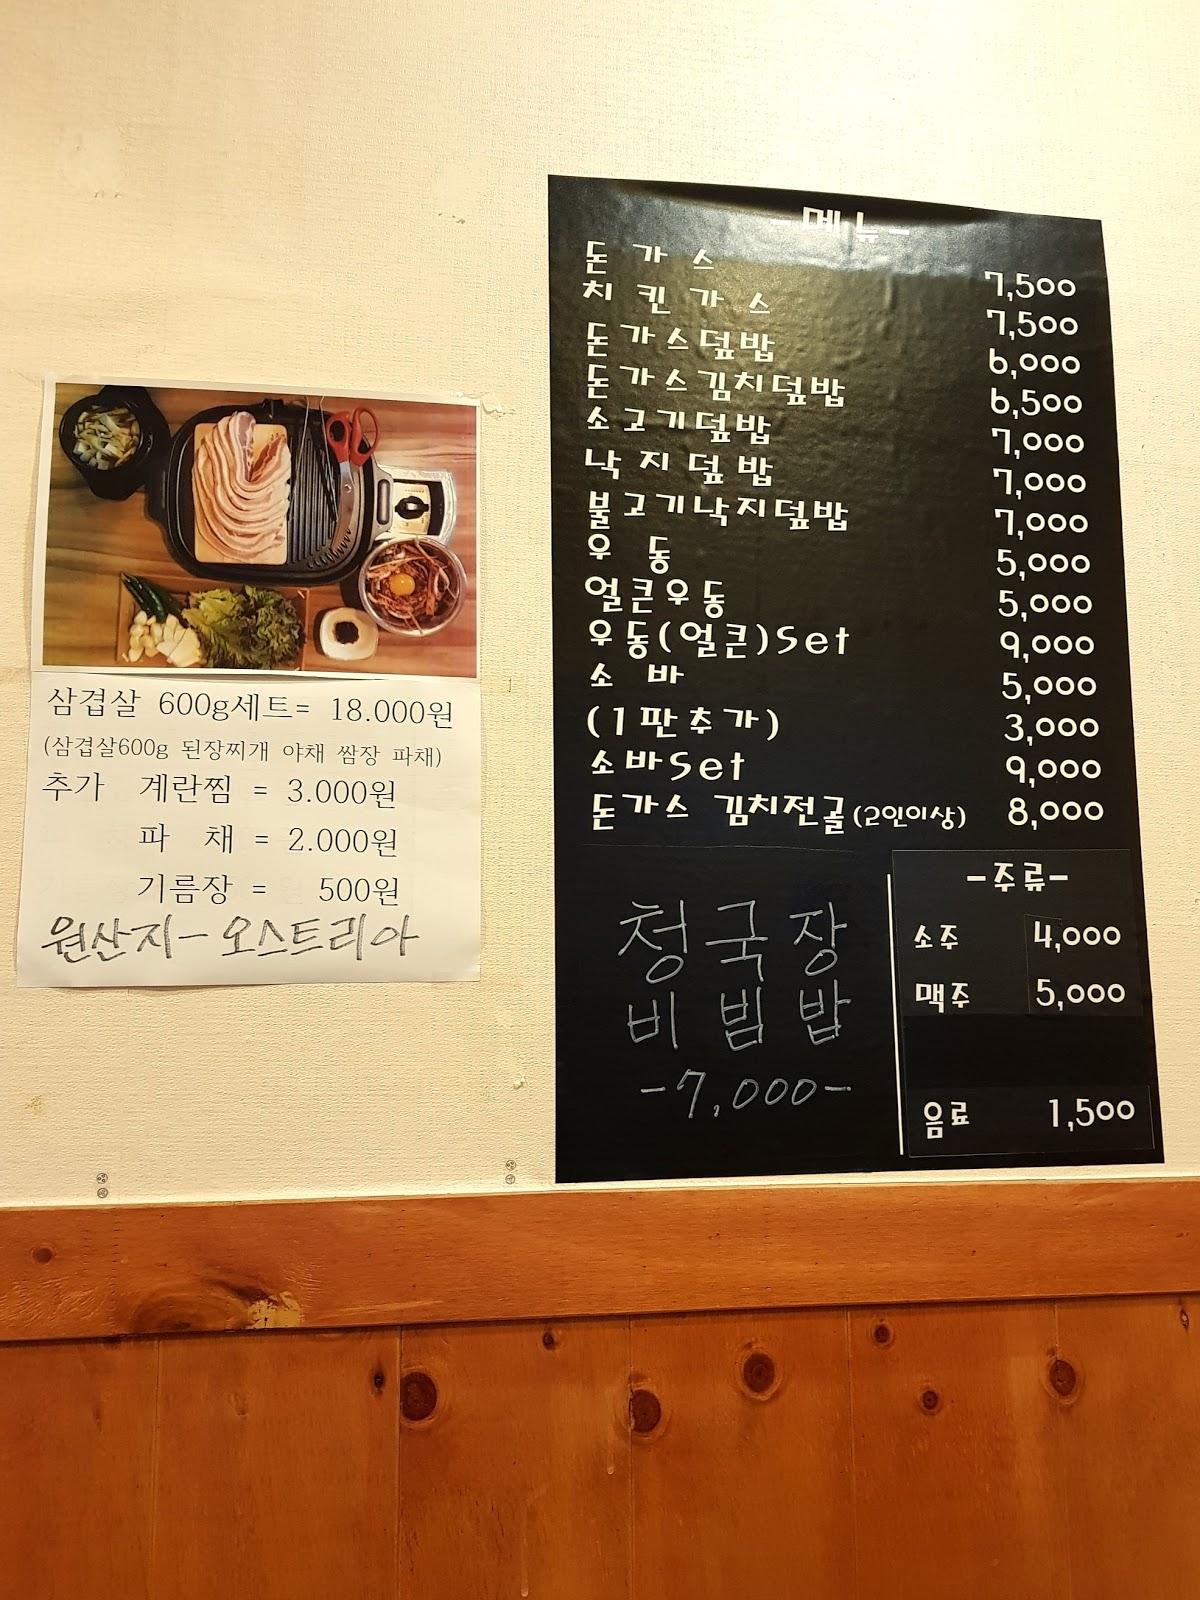 삼겹살 600g세트= 18.000원
(삼겹살600g 된장찌개 야채 쌈장 파채)
추가 계란찜 = 3.000원
파 채 = 2.000원
기름장 = 500원
원산지- 오스트리아
-메뉴-
돈가스 7,500
치킨가스 7,500
돈가스덮밥 6,000
돈가스김치덮밥 6,500
소고기덮밥 7,000
낙지덮밥 7,000
불고기낙지덮밥 7,000
우동 5,000
얼큰우동 5,000
우동(얼큰)Set 9,000
소바 5,000
(1판추가) 3,000
소바Set 9,000
돈가스 김치전골(2인이상) 8,000
청국장
비빔밥
-7,000-
-주류-
소주 4,000
맥주 5,000
음료 1,500